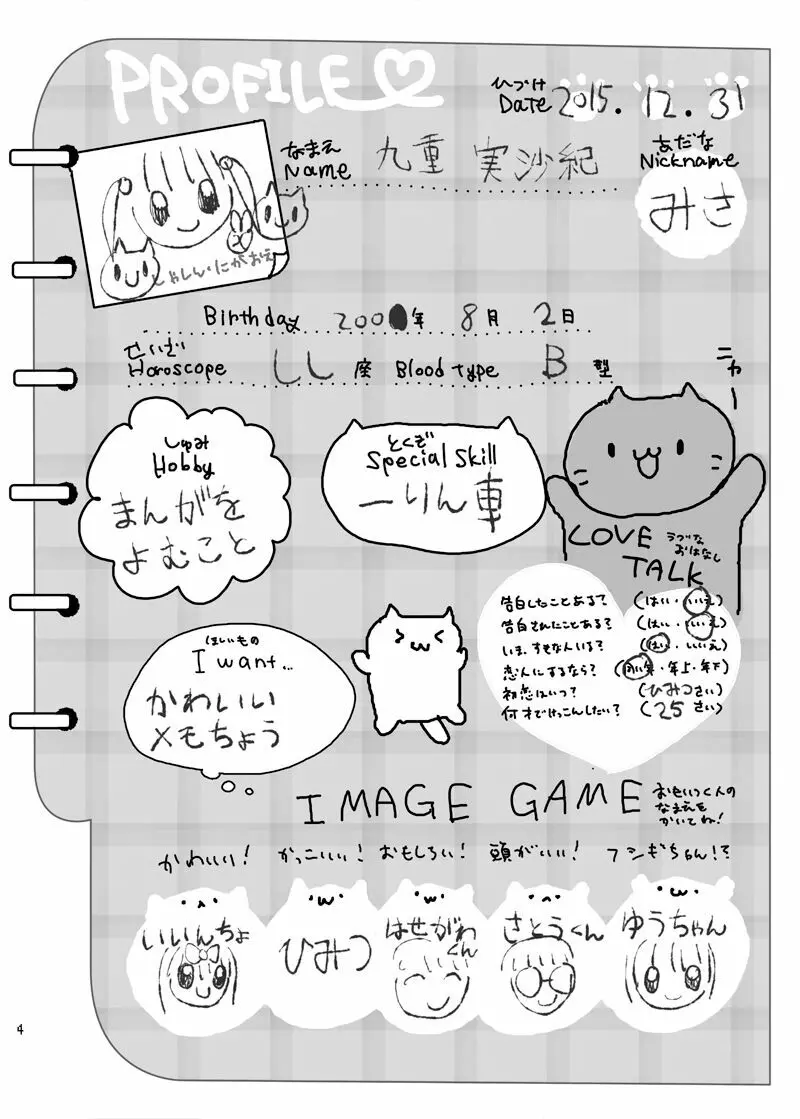 PROFILE
ひづけ
DATE 2015.12.31
なまえ
Name 九重 実沙紀
あだな
Nickname
みさ
しゃしん・にがおえ
Birthday 200 年 8月 2日
せいざ
Horoscope しし座 Blood type B型
ニャー
しゅみ
Hobby
まんがを
よむこと
とくぎ
Special Skill
一りん車
LOVE TALK
ラブな
おはなし
告白したことある? (はい・いいえ)
告白されたことある? (はい・いいえ)
いま、すきな人いる? (はい・いいえ)
恋人にするなら? (同い年・年上・年下)
初恋はいつ? (ひみつさい)
何才でけっこんしたい? (25さい)
ほしいもの
I want...
かわいい
メモちょう
IMAGE GAME
おもいつく人の
なまえを
かいてね!
かわいい! かっこいい! おもしろい! 頭がいい! フシギちゃん!?
いいんちょ
ひみつ
はせがわ
くん
さとうくん
ゆうちゃん
4